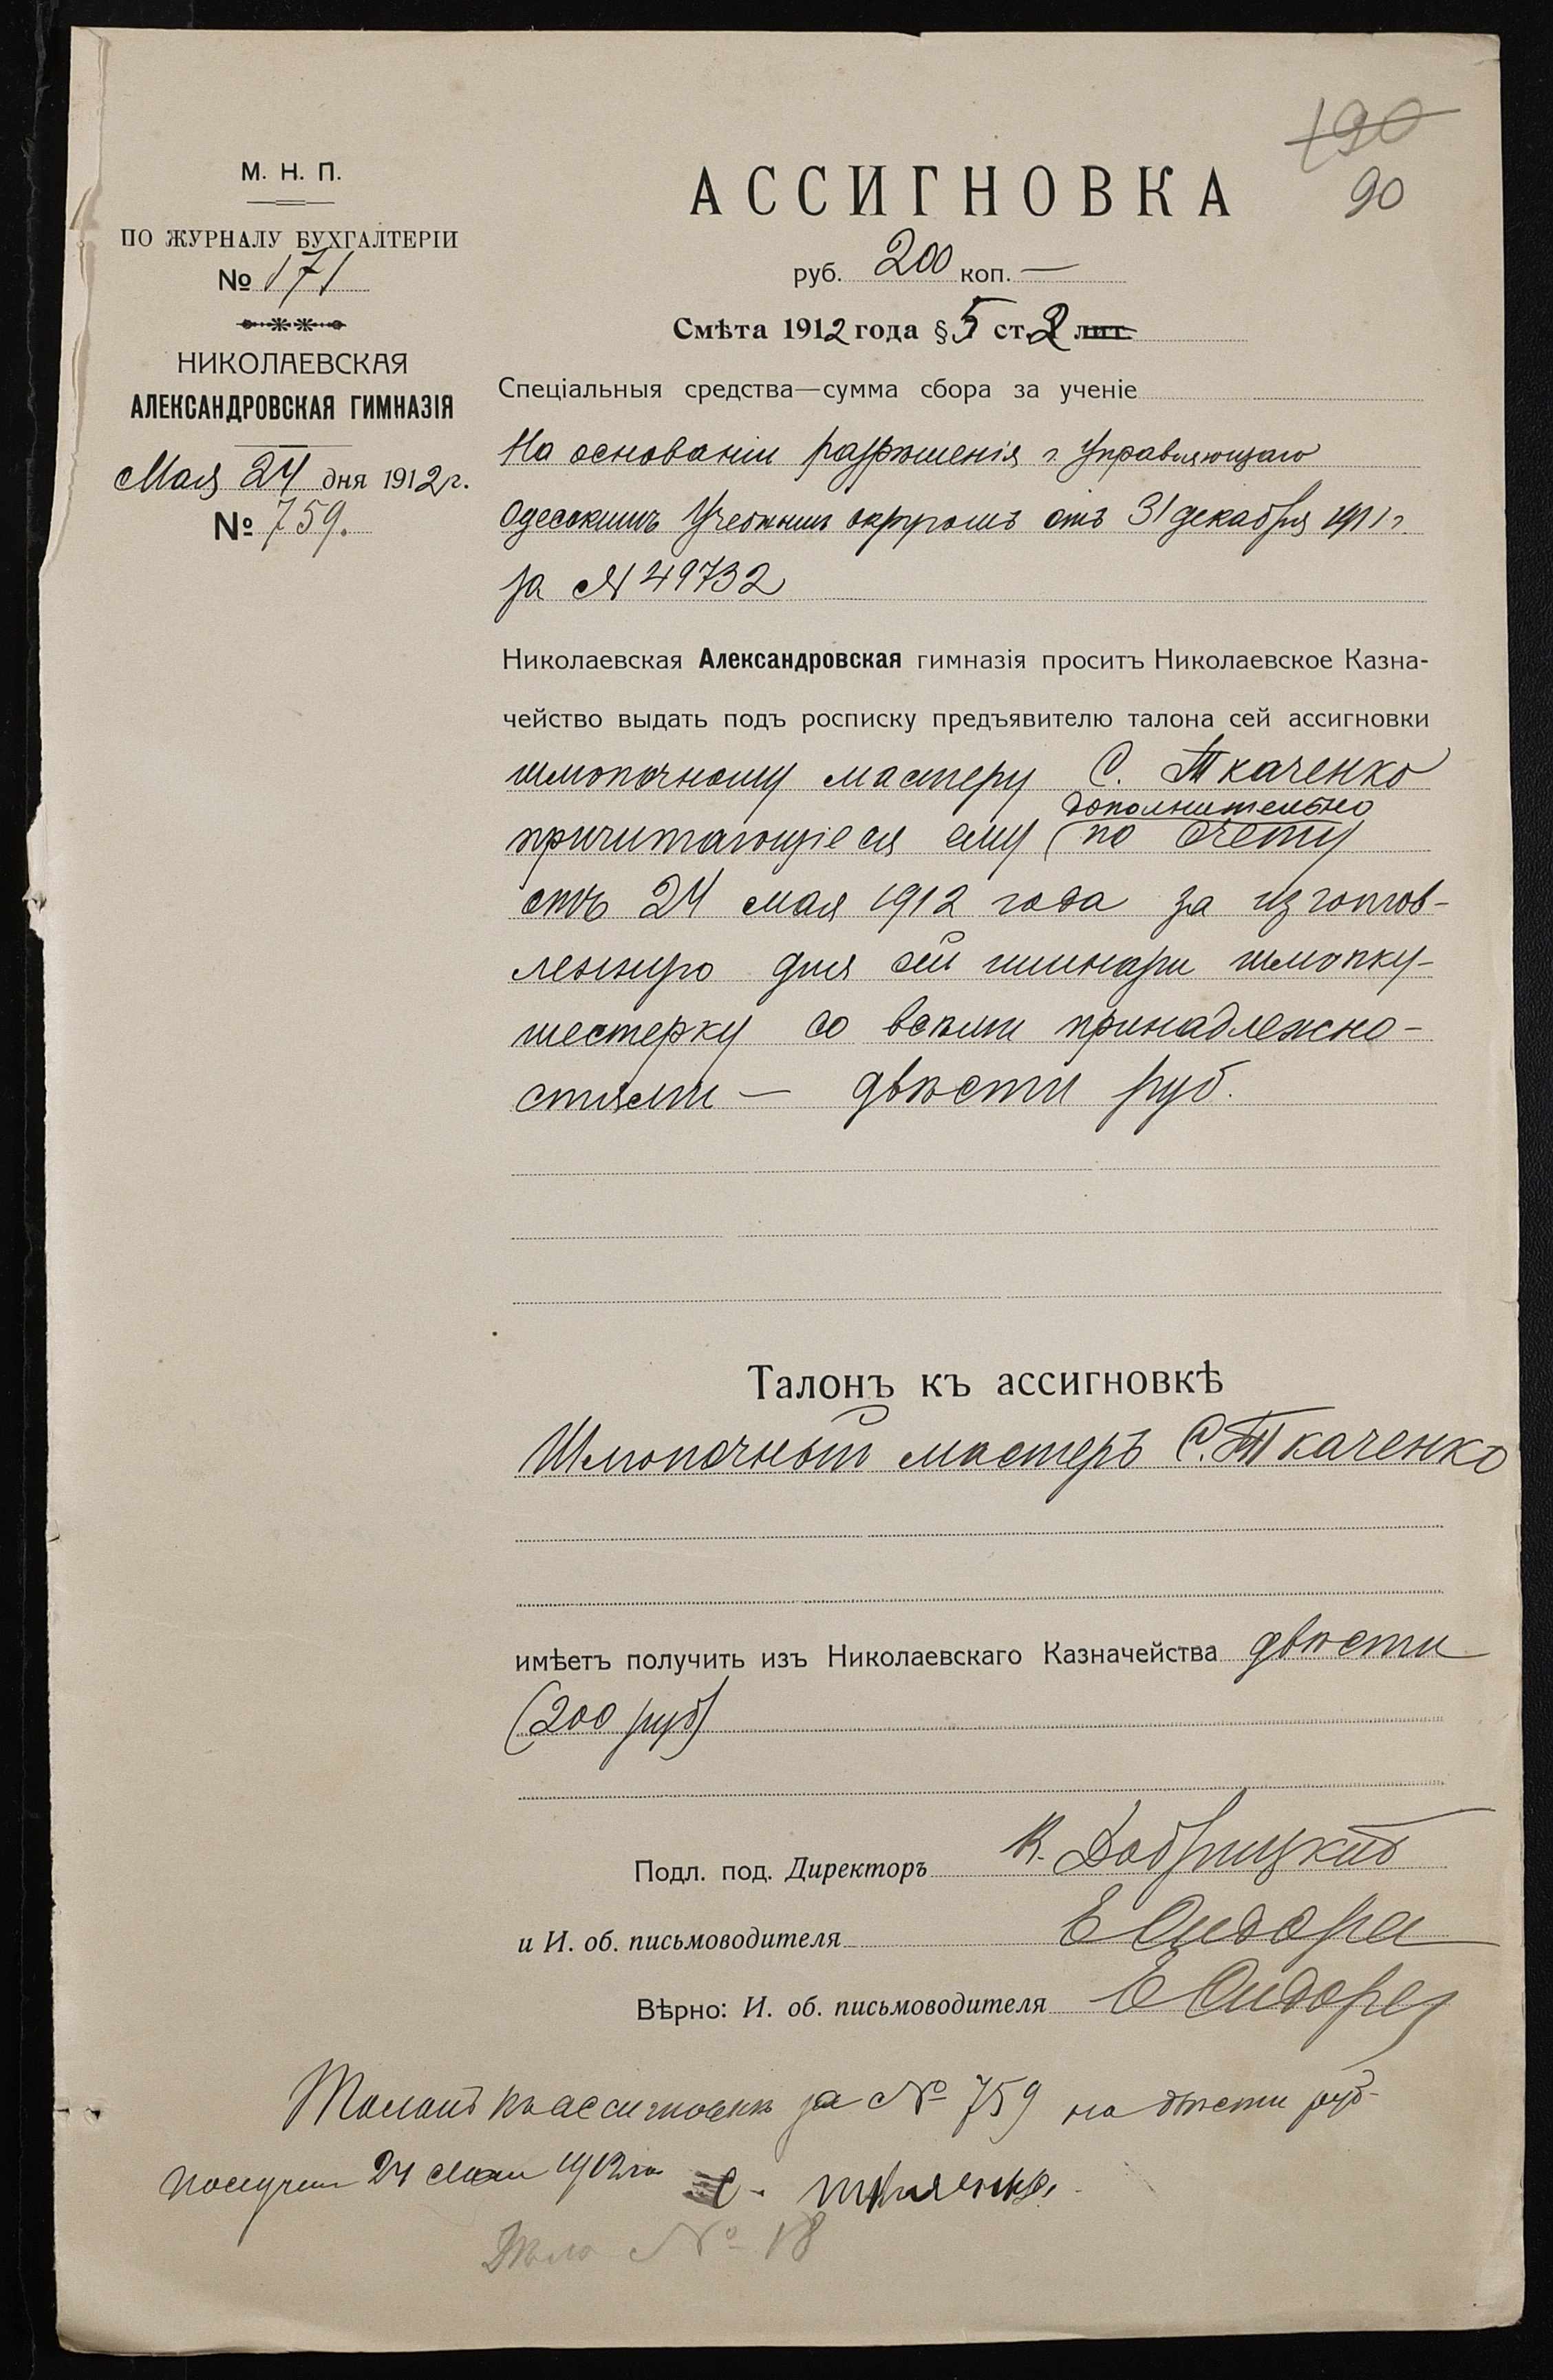 190
90
М. Н. П.
ПО ЖУРНАЛУ БУХГАЛТЕРІИ
№ 171
НИКОЛАЕВСКАЯ
АЛЕКСАНДРОВСКАЯ ГИМНАЗІЯ
Мая 24 дня 1912 г.
№ 759.
АССИГНОВКА
руб. 200 коп. —
Смѣта 1912 года § 5 ст. 2 лит.
Спеціальныя средства—сумма сбора за ученіе
На основаніи разрѣшенія г. Управляющаго
Одесскимъ Учебнымъ округомъ отъ 31 декабря 1911 г.
за № 49732
Николаевская Александровская гимназія проситъ Николаевское Казна-
чейство выдать подъ росписку предъявителю талона сей ассигновки
шлюпочному мастеру С. Ткаченко
дополнительно
причитающіеся ему по счету
отъ 24 мая 1912 года за изготов-
ленную для сей гимназіи шлюпку-
шестерку со всѣми принадлежно-
стями — двѣсти руб.
Талонъ къ ассигновкѣ
Шлюпочный мастеръ С. Ткаченко
имѣетъ получить изъ Николаевскаго Казначейства двѣсти
(200 руб)
Подл. под. Директоръ К.
и И. об. письмоводителя Е
Вѣрно: И. об. письмоводителя Е
Талонъ къ ассигновкѣ за № 759 на двести руб.
получил 24 мая 1912 го С. Ткаченко.
Дѣло № 18